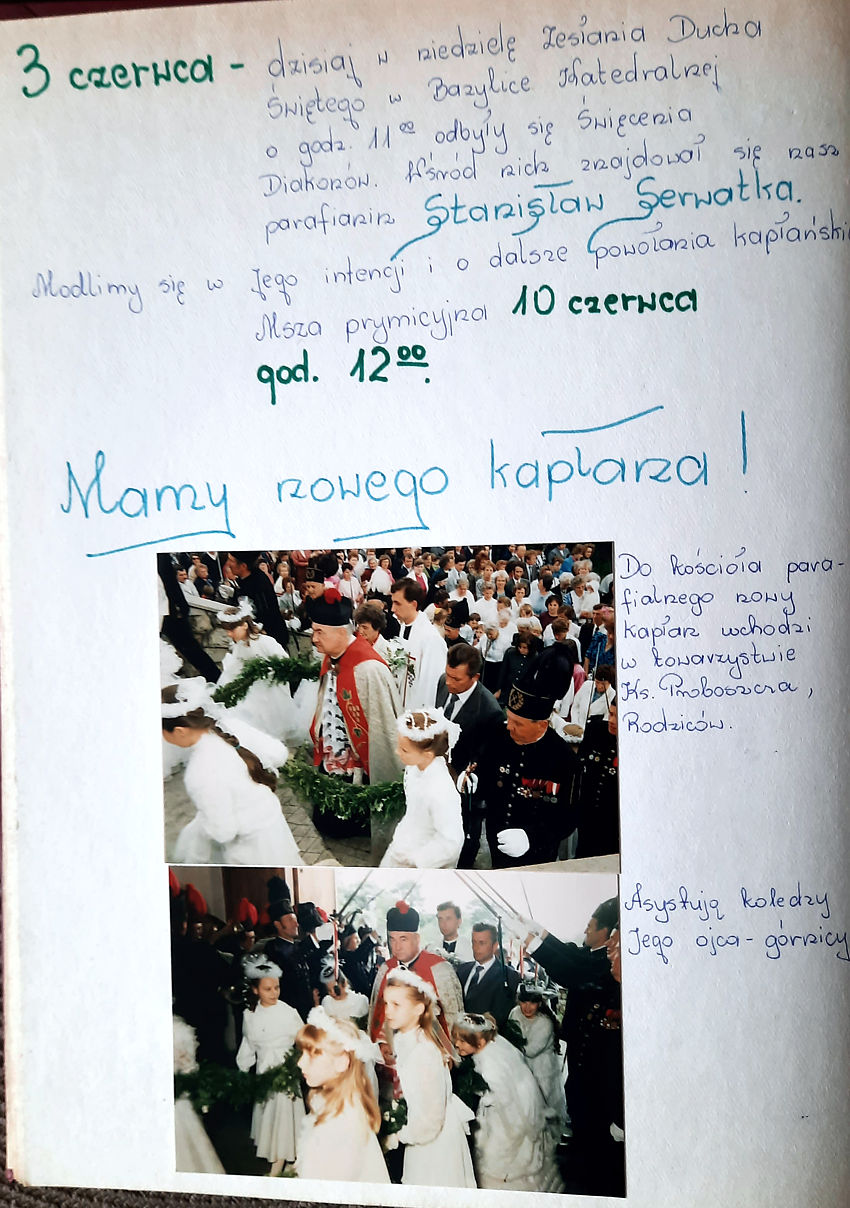 3 czerwca - dzisiaj w niedzielę Zesłania Ducha
Świętego w Bazylice Katedralnej
o godz. 11⁰⁰ odbyły się Święcenia
Diakonów. Wśród nich znajdował się nasz
parafianin Stanisław Serwatka.
Modlimy się w Jego intencji i o dalsze powołania kapłański
Msza prymicyjna 10 czerwca
god. 12⁰⁰.
Mamy nowego kapłana!
Do kościoła para-
fialnego nowy
kapłan wchodzi
w towarzystwie
Ks. Proboszcza,
Rodziców.
Asystują koledzy
Jego ojca - górnicy